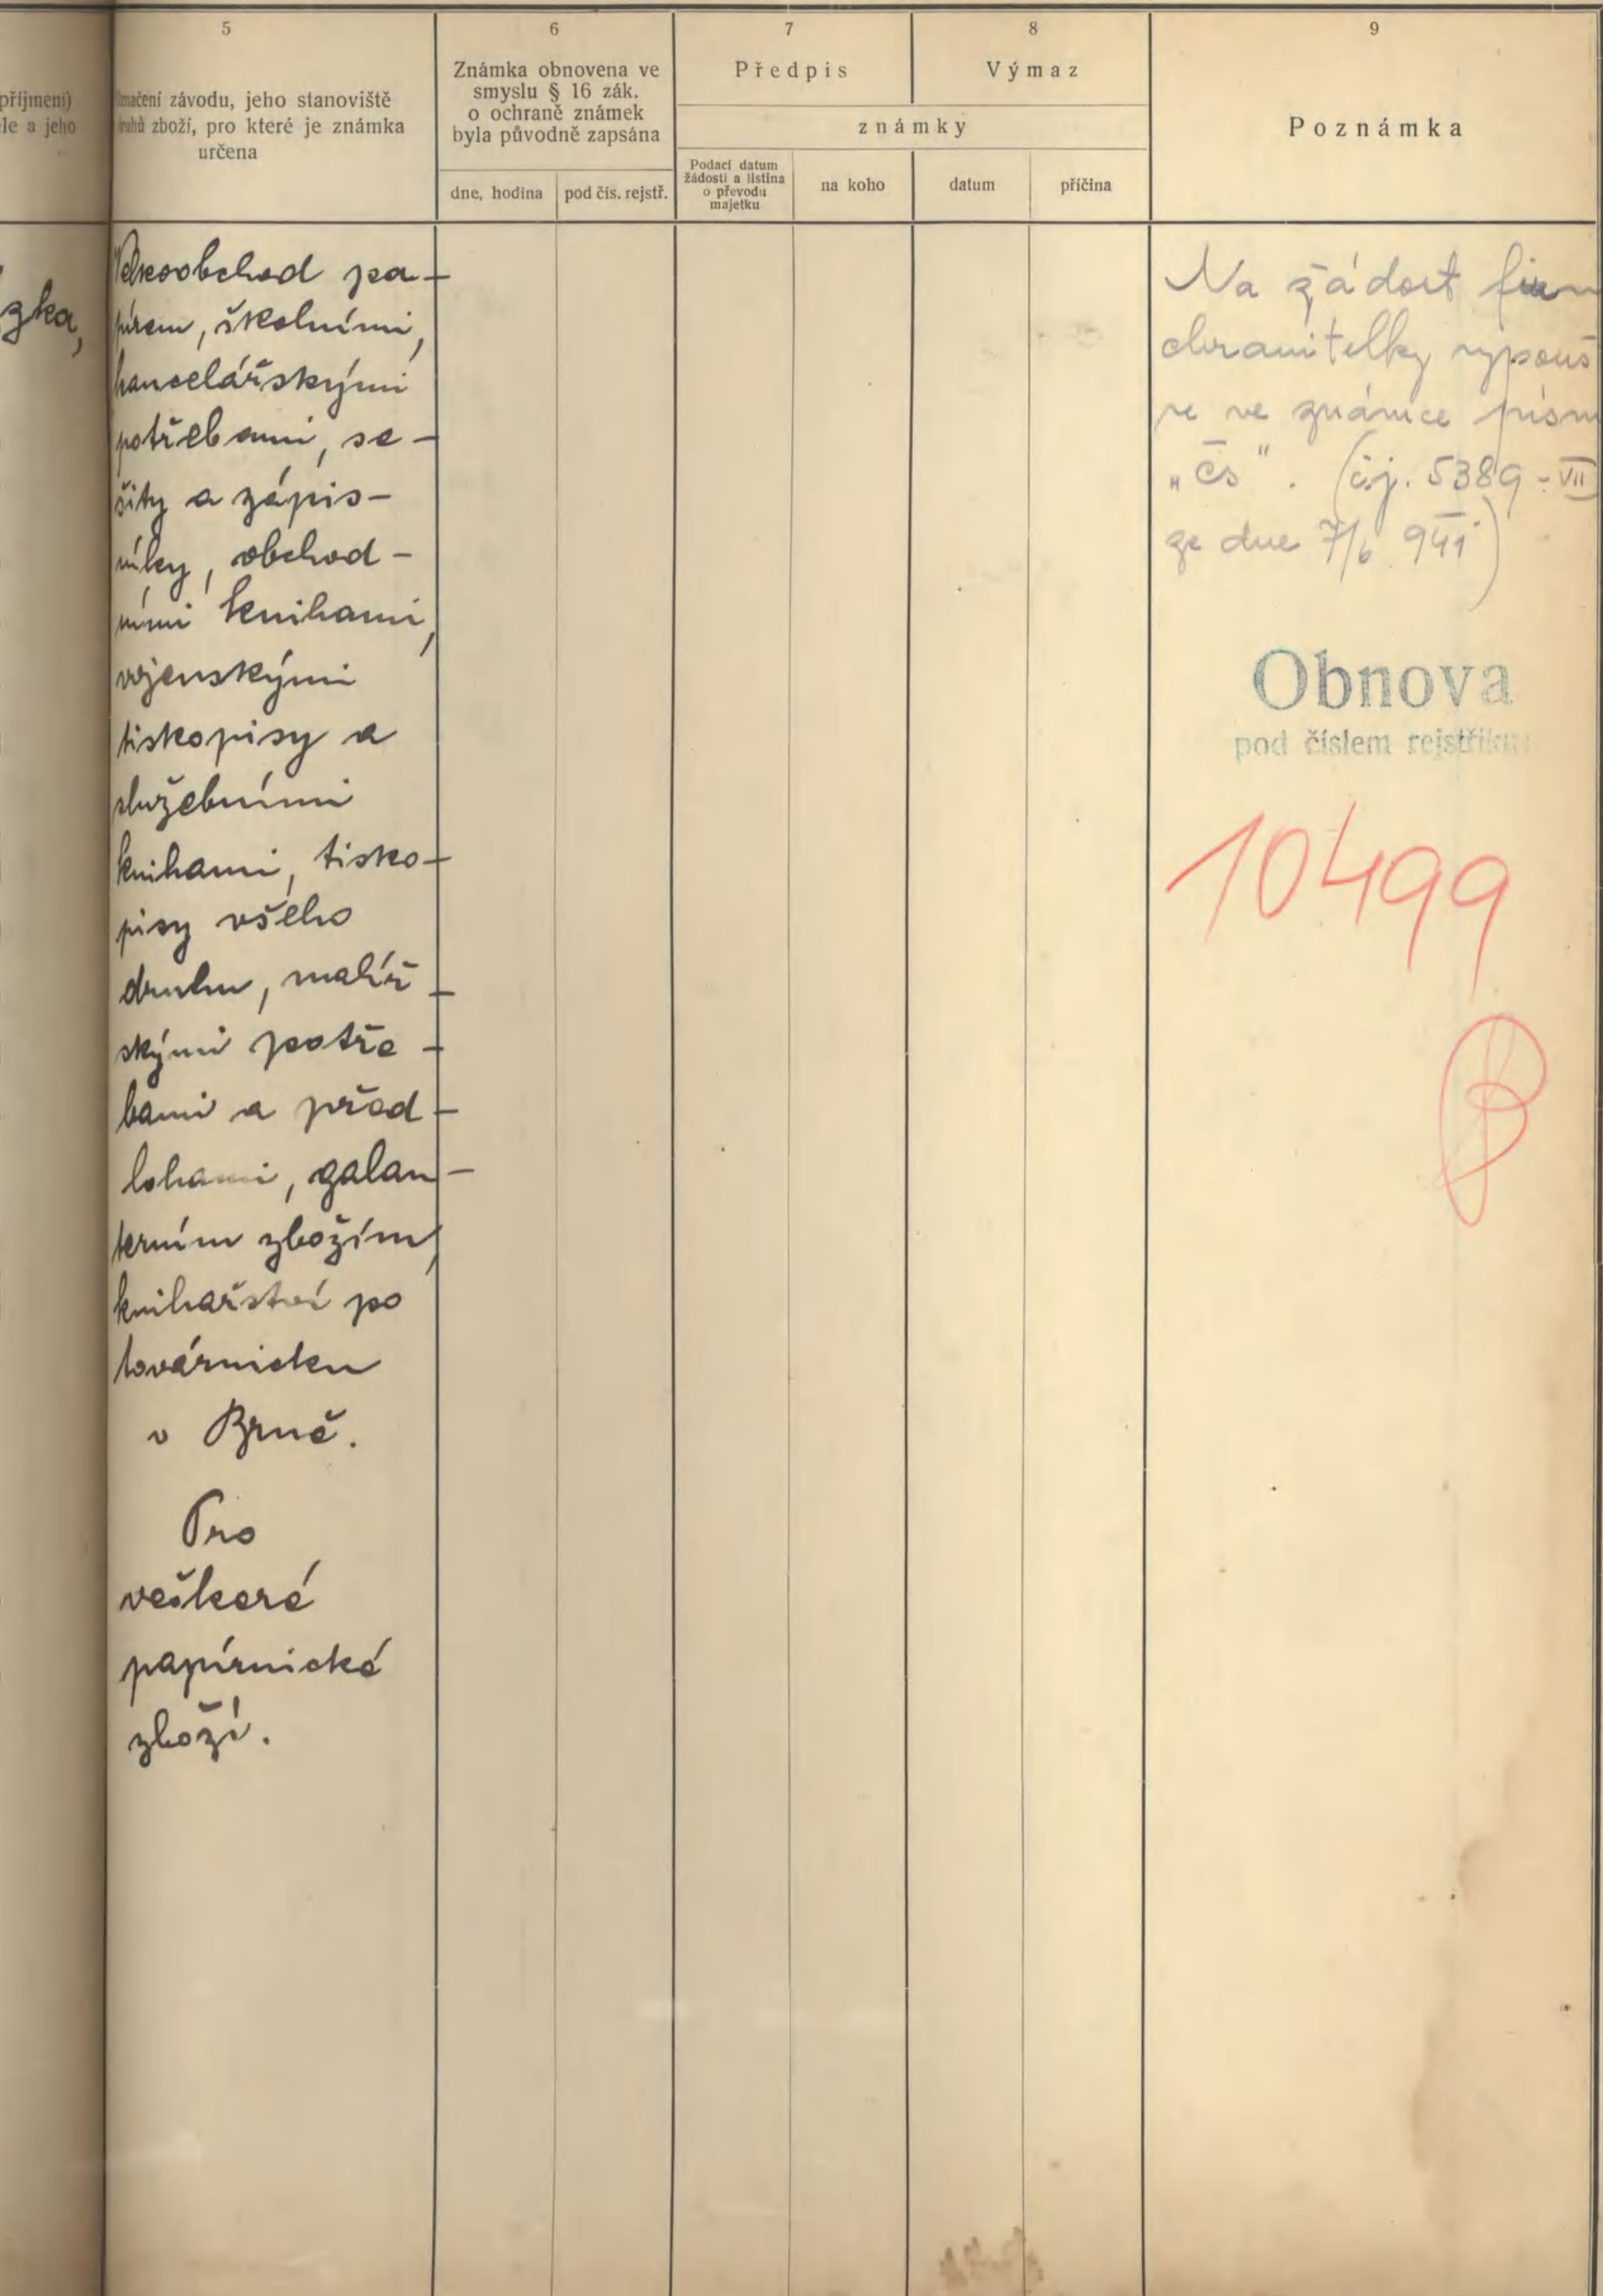 5
6
7
8
9
příjmení)
le a jeho
značení závodu, jeho stanoviště
druhů zboží, pro které je známka
určena
Známka obnovena ve
smyslu § 16 zák.
o ochraně známek
byla původně zapsána
dne, hodina
pod čís. rejstř.
Předpis
Výmaz
známky
Podací datum
žádosti a listina
o převodu
majetku
na koho
datum
příčina
Poznámka
zka,
Velkoobchod pa-
pírem, školními,
kancelářskými
potřebami, se-
šity a zápis-
níky, obchod-
ními knihami,
vojenskými
tiskopisy a
služebními
knihami, tisko-
pisy všeho
druhu, malíř-
skými potře-
bami a před-
lohami, galan-
terním zbožím,
knihařství po
továrnicku
v Brně.
Pro
veškeré
papírnické
zboží.
Na žádost firm
chranitelky vypouš
se ve známce písm
„čs“. (čj. 5389-VII
ze dne 7/6 941)
Obnova
pod číslem rejstříku
10499